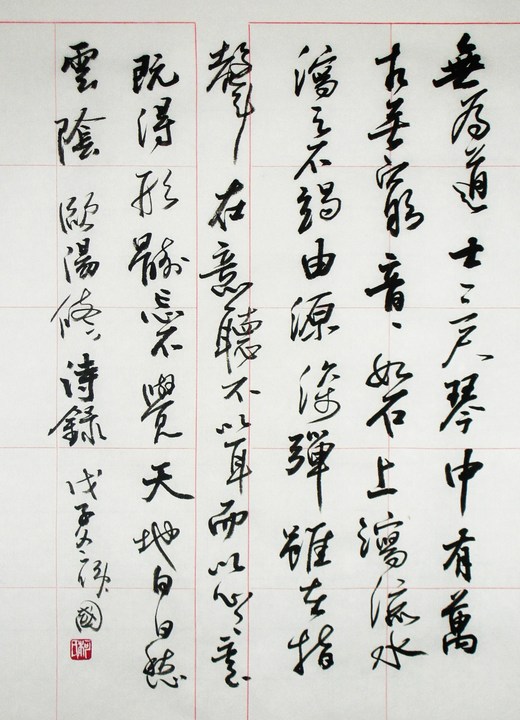 無為道士三尺琴中有萬
古無窮音〻如石上瀉流水
瀉之不竭由源深彈雖在指
聲在意聽不以耳而以心〻意
既得形骸忘不覺天地白日愁
雲陰 歐陽修詩錄 戊子冬 國